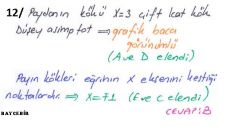 12/ Paydanın kökü x=3 çift kat kök
Düşey asimptot ⇒ grafik baca
görünümlü
(A ve D elendi)
Payın kökleri eğrinin x eksenini kestiği
noktalardır. ⇒ x=∓1 (E ve C elendi)
CEVAP: B
BAYÇEBİR